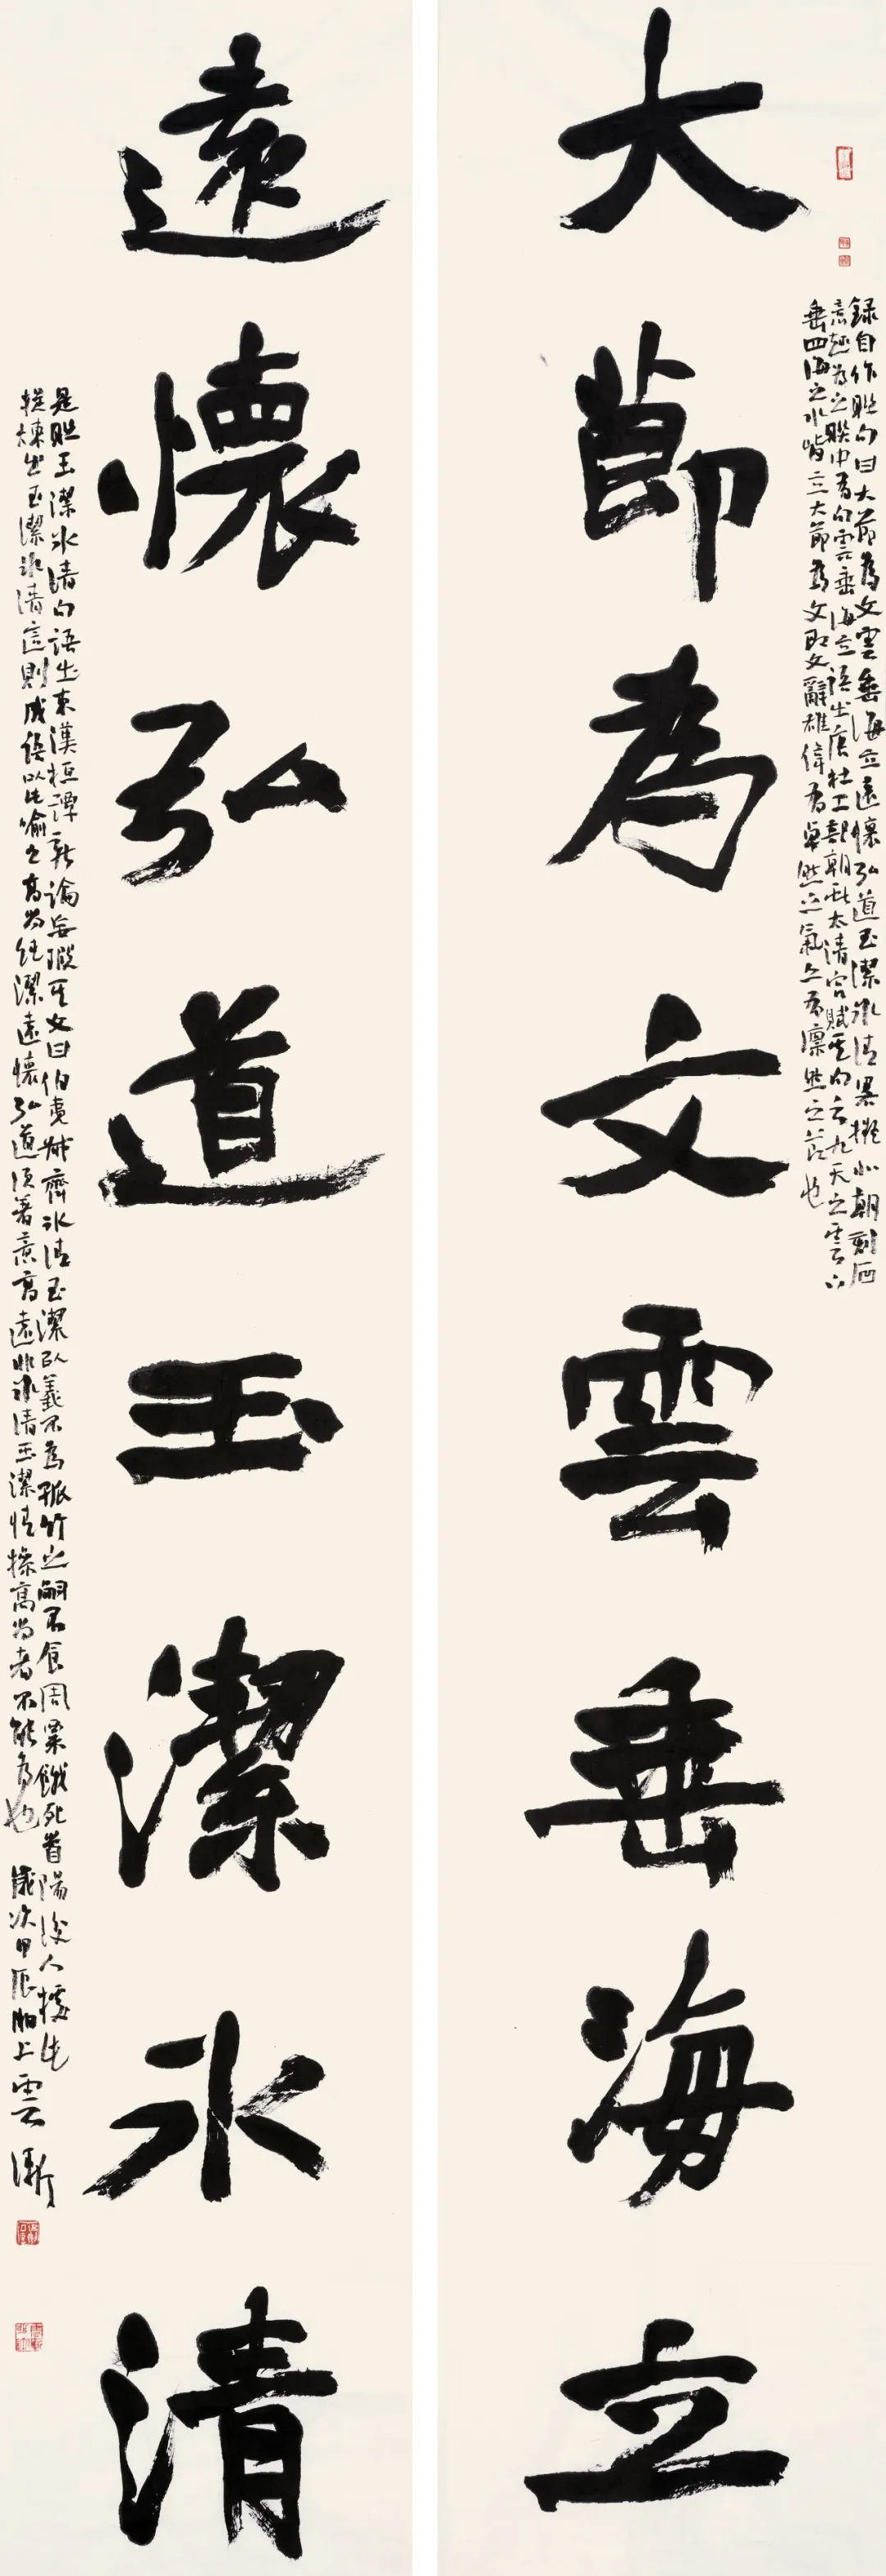 大節為文雲垂海立
錄自作聯句曰大節為文雲垂海立遠懷弘道玉潔冰清畧擬北朝刻石
意趣為之聯中有句雲垂海立語出唐杜工部朝獻太清宮賦其句云九天之雲下
垂四海之水皆立大節為文即文辭雄偉有卓然之氣亦有凜然之節也
遠懷弘道玉潔冰清
是聯玉潔冰清句語出東漢桓譚新論妄瑕其文曰伯夷叔齊冰清玉潔以義不為孤竹之嗣不食周粟餓死首陽後人據此
提煉出玉潔冰清這則成語以比喻之高尚純潔遠懷弘道須著意高遠非冰清玉潔情操高尚者不能為也 歲次甲辰湖上雲漸